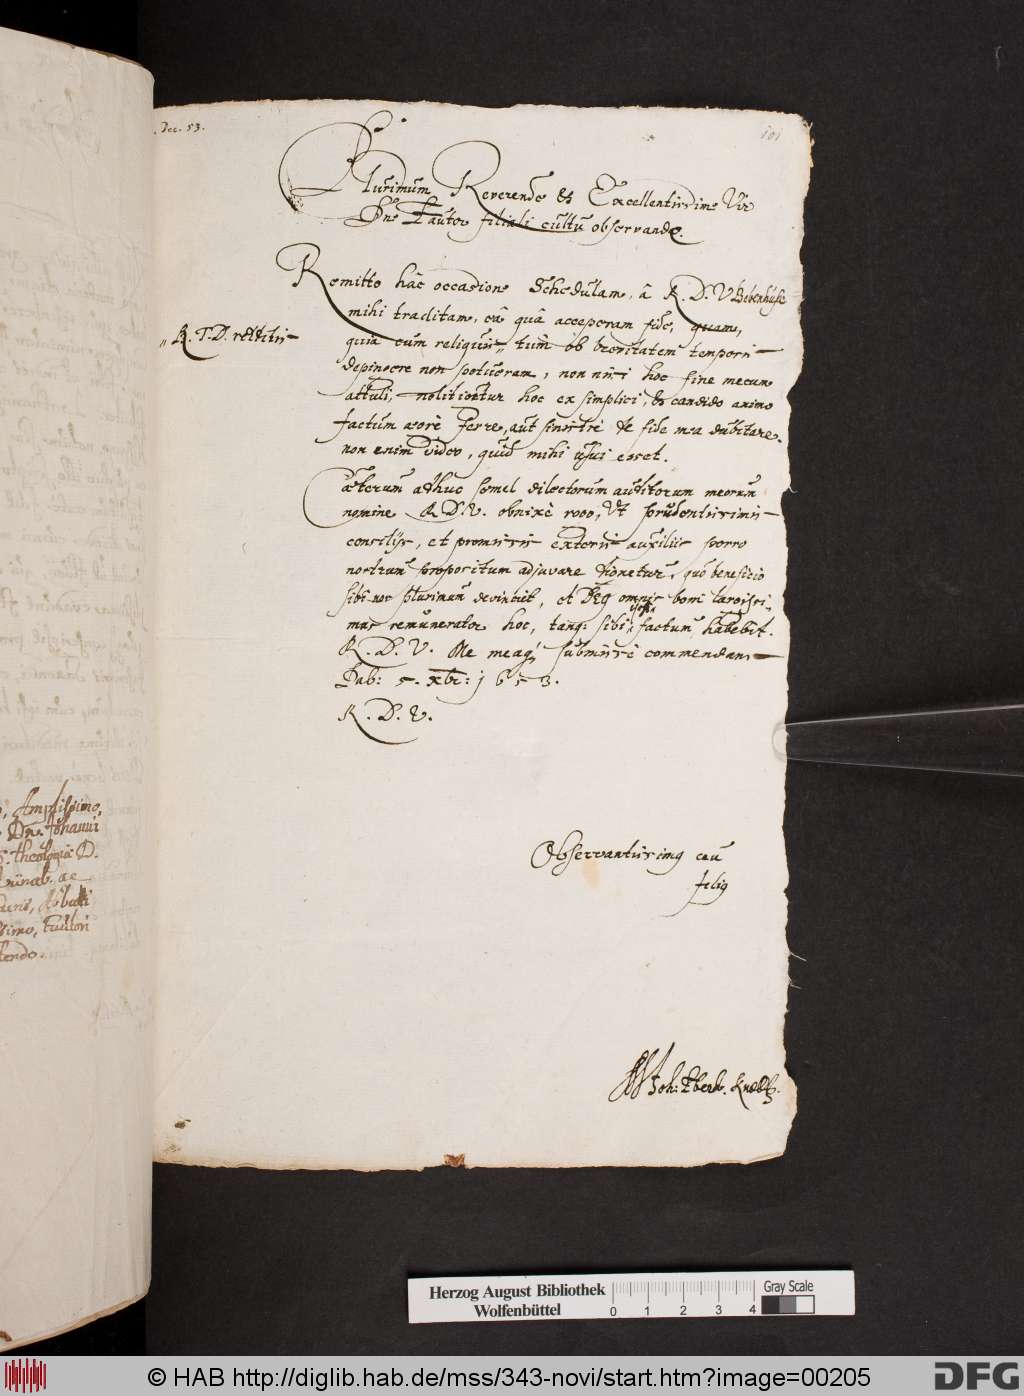 Dec. 53.
101
Plurimùm Reverende & Excellentissime Vir
Dne Fautor filiali cultu observande.
Remitto hâc occasione Schedulam, â R. D. V. Bebenhusæ
mihi traditam, eâ quâ acceperam fide, quam,
„ R. T. D. restitis
quia cum reliquis „ tùm ob brevitatem temporis
depingere non potueram, non nisi hoc fine mecum
attuli, nolit igitur hoc ex simplici, & candido animo
factum ægrè ferre, aut sinistrè de fide mea dubitare.
non enim video, quid mihi usui esset.
Cæterum adhuc semel dilectorum auditorum meorum
nomine R. D. V. obnixè rogo, Ut prudentissimis
consilijs, et promissis externis auxilijs porro
nostrum propositum adjuvare dignetur, quo beneficio
sibi nos plurimùm devinciet, et Deq omnis boni largissi-
mus remunerator hoc, tanq: sibi ipsi factum habebit.
R. D. V. Me meaq submissè commendans
Dab: 5. xbr: 1653.
R. D. V.
Observantissimq ceu
filiq
Joh: Eberh. Knoll
Amplissimo,
Dn. Johanni
S. theologiæ D.
ac
Abbati
simo, Fautori
endo.
Herzog August Bibliothek
Wolfenbüttel
0 1 2 3 4
Gray Scale
© HAB http://diglib.hab.de/mss/343-novi/start.htm?image=00205
DFG